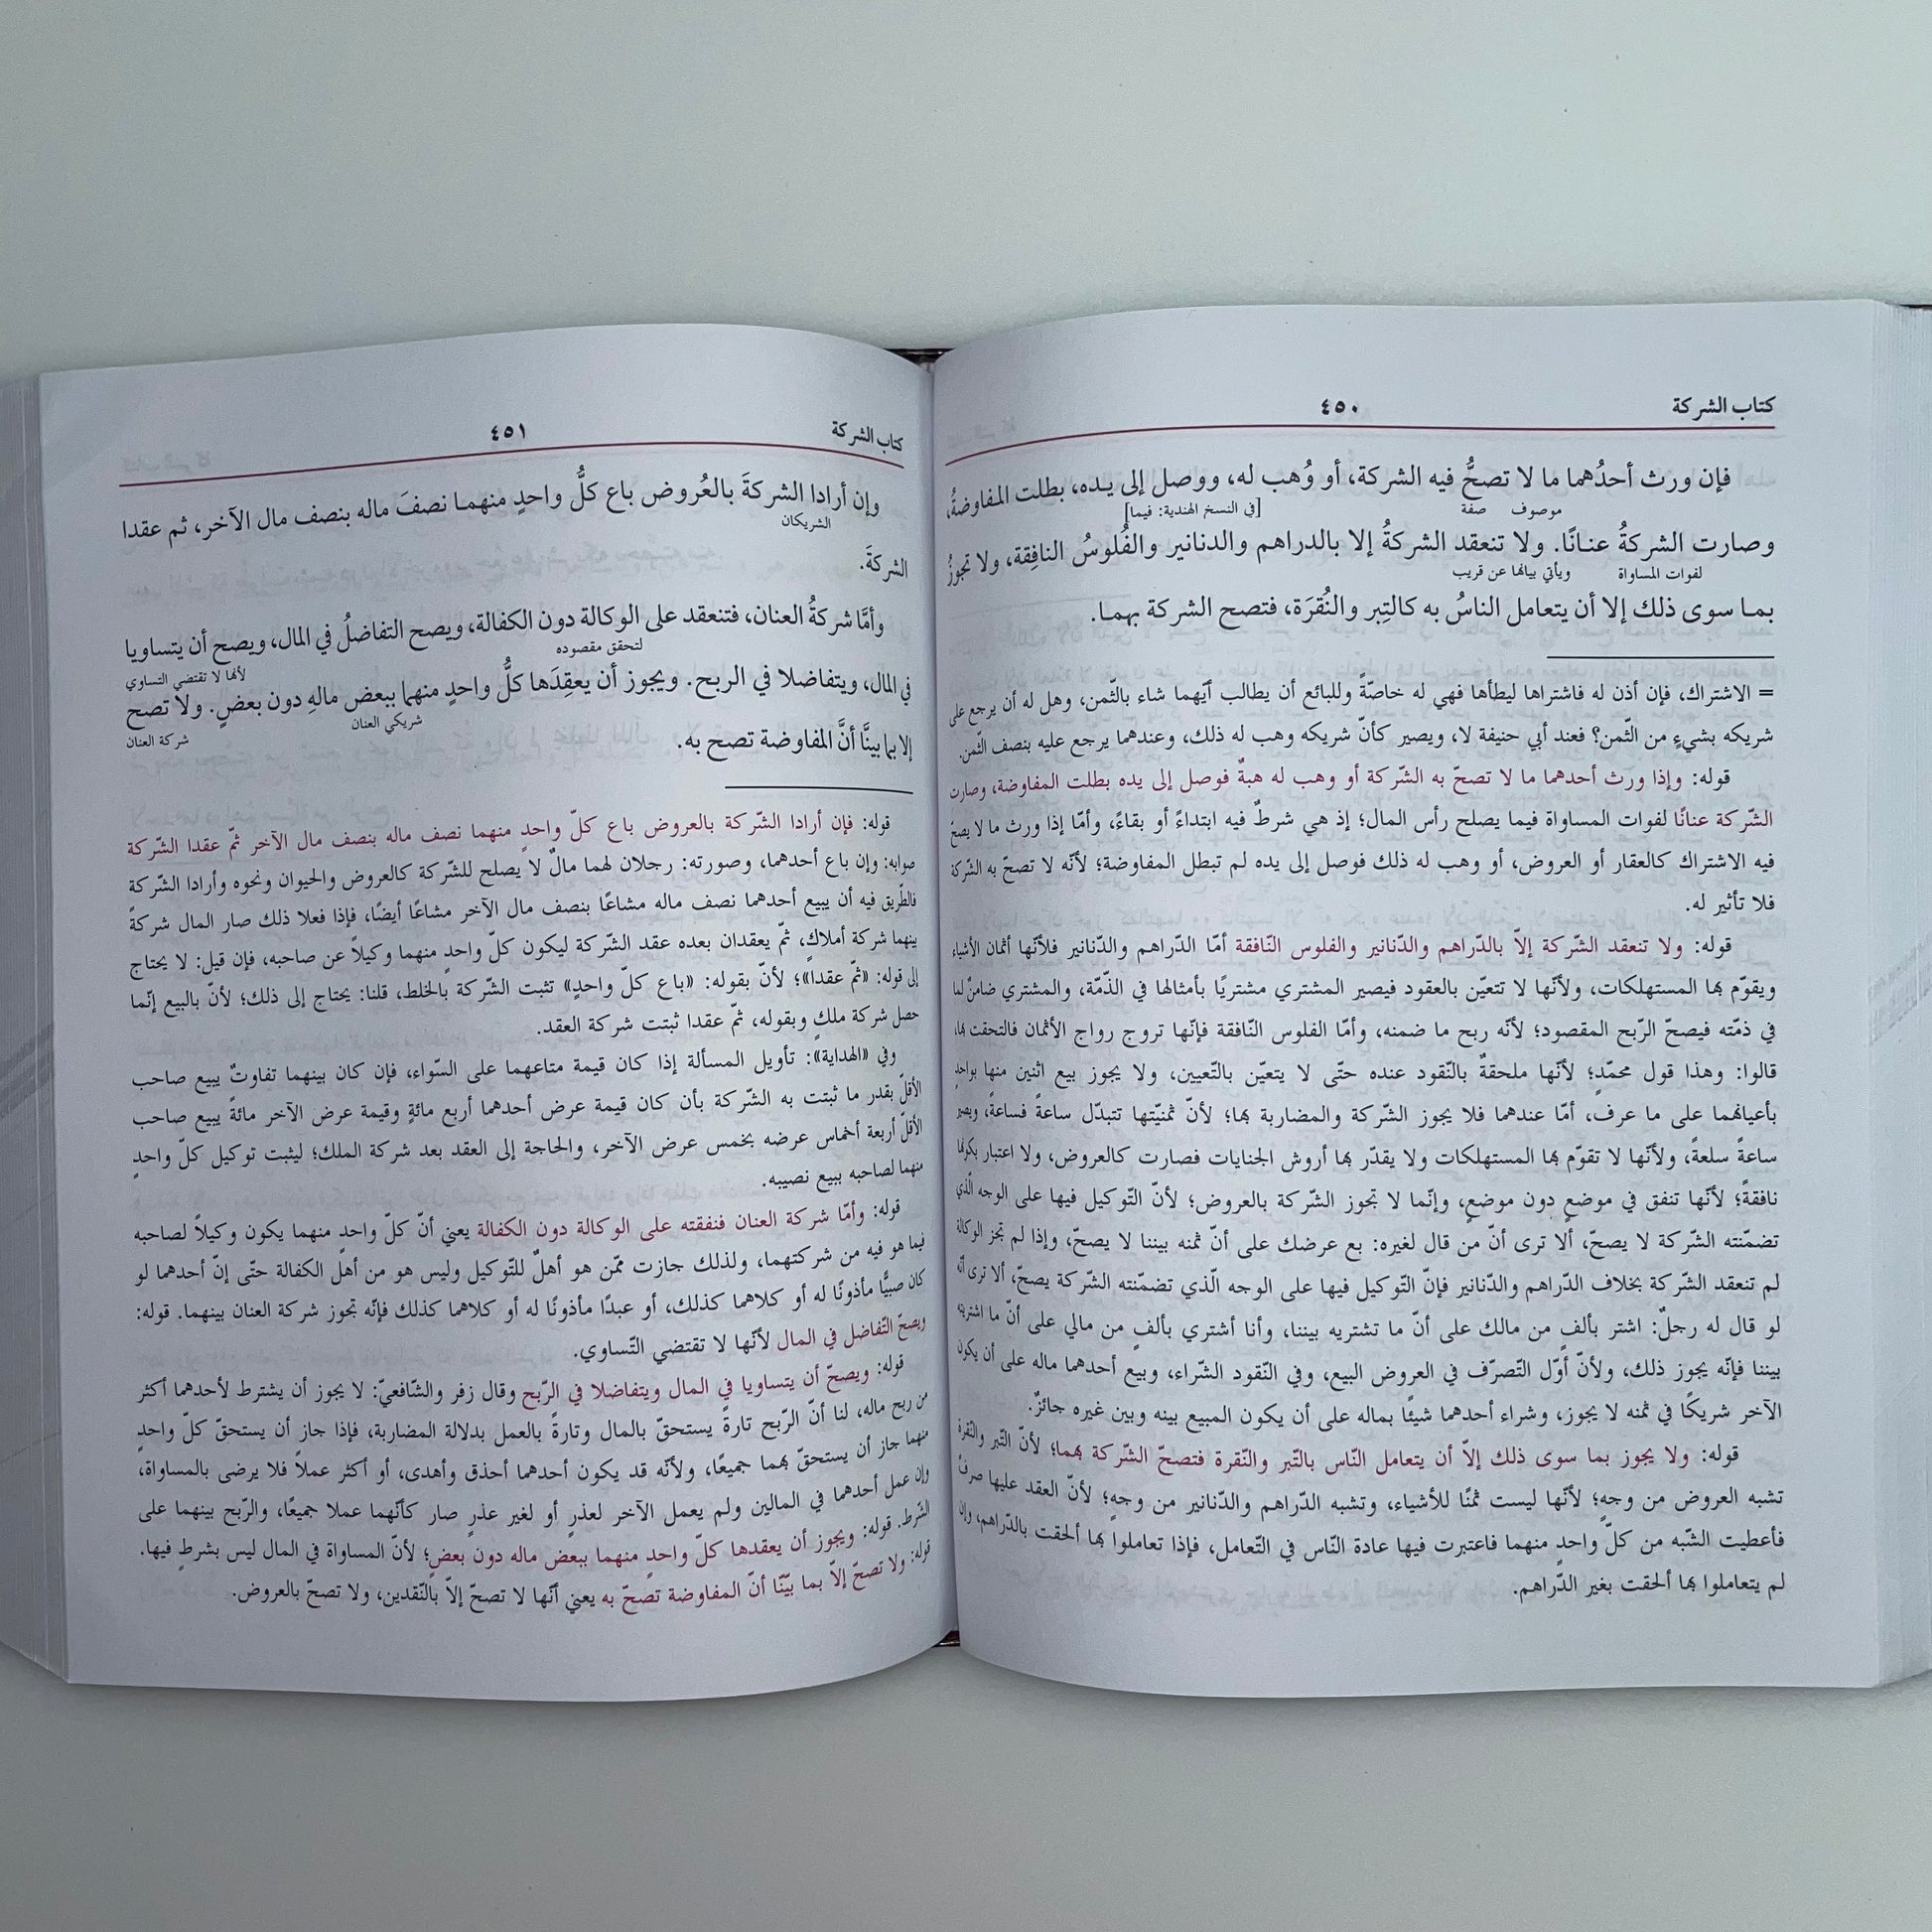 كتاب الشركة ٤٥٠
فإن ورث أحدُهما ما لا تصحُّ فيه الشركة، أو وُهب له، ووصل إلى يـده، بطلت المفاوضةُ،
موصوف صفة [في النسخ الهندية: فيما]
وصارت الشركةُ عنـانًا. ولا تنعقد الشركةُ إلا بالدراهم والدنانير والفُلوسُ النافِقة، ولا تجوزُ
لفوات المساواة ويأتي بيانها عن قريب
بمـا سوى ذلك إلا أن يتعامل الناسُ به كالتِبر والنُقرَة، فتصح الشركة بهمـا.
= الاشتراك، فإن أذن له فاشتراها ليطأها فهي له خاصّةً وللبائع أن يطالب أيّهما شاء بالثّمن، وهل له أن يرجع على
شريكه بشيءٍ من الثّمن؟ فعند أبي حنيفة لا، ويصير كأنّ شريكه وهب له ذلك، وعندهما يرجع عليه بنصف الثّمن.
قوله: وإذا ورث أحدهما ما لا تصحّ به الشّركة أو وهب له هبةٌ فوصل إلى يده بطلت المفاوضة، وصارت
الشّركة عنانًا لفوات المساواة فيما يصلح رأس المال؛ إذ هي شرطٌ فيه ابتداءً أو بقاءً، وأمّا إذا ورث ما لا يصحّ
فيه الاشتراك كالعقار أو العروض، أو وهب له ذلك فوصل إلى يده لم تبطل المفاوضة؛ لأنّه لا تصحّ به الشركة
فلا تأثير له.
قوله: ولا تنعقد الشّركة إلاّ بالدّراهم والدّنانير والفلوس النّافقة أمّا الدّراهم والدّنانير فلأنّها أثمان الأشياء
ويقوّم بها المستهلكات، ولأنّها لا تتعيّن بالعقود فيصير المشتري مشتريًا بأمثالها في الذّمّة، والمشتري ضامنٌ لما
في ذمّته فيصحّ الرّبح المقصود؛ لأنّه ربح ما ضمنه، وأمّا الفلوس النّافقة فإنّها تروج رواج الأثمان فالتحقت بها،
قالوا: وهذا قول محمّدٍ؛ لأنّها ملحقةٌ بالنّقود عنده حتّى لا يتعيّن بالتّعيين، ولا يجوز بيع اثنين منها بواحدٍ
بأعيانهما على ما عرف، أمّا عندهما فلا يجوز الشّركة والمضاربة بها؛ لأنّ ثمنيّتها تتبدّل ساعةً فساعةً، ويصير
ساعةً سلعةً، ولأنّها لا تقوّم بها المستهلكات ولا يقدّر بها أروش الجنايات فصارت كالعروض، ولا اعتبار بكونها
نافقةً؛ لأنّها تنفق في موضعٍ دون موضعٍ، وإنّما لا تجوز الشّركة بالعروض؛ لأنّ التّوكيل فيها على الوجه الّذي
تضمّنته الشّركة لا يصحّ، ألا ترى أنّ من قال لغيره: بع عرضك على أنّ ثمنه بيننا لا يصحّ، وإذا لم تجز الوكالة
لم تنعقد الشّركة بخلاف الدّراهم والدّنانير فإنّ التّوكيل فيها على الوجه الّذي تضمّنته الشّركة يصحّ، ألا ترى أنّه
لو قال له رجلٌ: اشتر بألفٍ من مالك على أنّ ما تشتريه بيننا، وأنا أشتري بألفٍ من مالي على أنّ ما اشتريته
بيننا فإنّه يجوز ذلك، ولأنّ أوّل التّصرّف في العروض البيع، وفي النّقود الشّراء، وبيع أحدهما ماله على أن يكون
الآخر شريكًا في ثمنه لا يجوز، وشراء أحدهما شيئًا بماله على أن يكون المبيع بينه وبين غيره جائزٌ.
قوله: ولا يجوز بما سوى ذلك إلاّ أن يتعامل النّاس بالتّبر والنّقرة فتصحّ الشّركة بهما؛ لأنّ التّبر والنّقرة
تشبه العروض من وجهٍ؛ لأنّها ليست ثمنًا للأشياء، وتشبه الدّراهم والدّنانير من وجهٍ؛ لأنّ العقد عليها صرفٌ
فأعطيت الشّبه من كلّ واحدٍ منهما فاعتبرت فيها عادة النّاس في التّعامل، فإذا تعاملوا بها ألحقت بالدّراهم، وإن
لم يتعاملوا بها ألحقت بغير الدّراهم.
كتاب الشركة ٤٥١
وإن أرادا الشركةَ بالعُروض باع كلُّ واحدٍ منهمـا نصفَ ماله بنصف مال الآخر، ثم عقدا
الشريكان
الشركةَ.
وأمَّا شركةُ العنان، فتنعقد على الوكالة دون الكفالة، ويصح التفاضلُ في المال، ويصح أن يتساويا
لتحقق مقصوده
لأنها لا تقتضي التساوي
في المال، ويتفاضلا في الربح. ويجوز أن يعقِدَها كلُّ واحدٍ منهما ببعض مالهِ دون بعضٍ. ولا تصح
شريكي العنان شركة العنان
إلا بما بينَّا أنَّ المفاوضة تصح به.
قوله: فإن أرادا الشّركة بالعروض باع كلّ واحدٍ منهما نصف ماله بنصف مال الآخر ثمّ عقدا الشّركة
صوابه: وإن باع أحدهما، وصورته: رجلان لهما مالٌ لا يصلح للشّركة كالعروض والحيوان ونحوه وأرادا الشّركة
فالطّريق فيه أن يبيع أحدهما نصف ماله مشاعًا بنصف مال الآخر مشاعًا أيضًا، فإذا فعلا ذلك صار المال شركةً
بينهما شركة أملاكٍ، ثمّ يعقدان بعده عقد الشّركة ليكون كلّ واحدٍ منهما وكيلاً عن صاحبه، فإن قيل: لا يحتاج
إلى قوله: «ثمّ عقدا»؛ لأنّ بقوله: «باع كلّ واحدٍ» تثبت الشّركة بالخلط، قلنا: يحتاج إلى ذلك؛ لأنّ بالبيع إنّما
حصل شركة ملكٍ وبقوله، ثمّ عقدا ثبتت شركة العقد.
وفي «الهداية»: تأويل المسألة إذا كان قيمة متاعهما على السّواء، فإن كان بينهما تفاوتٌ يبيع صاحب
الأقلّ بقدر ما ثبتت به الشّركة بأن كان قيمة عرض أحدهما أربع مائةٍ وقيمة عرض الآخر مائةً يبيع صاحب
الأقلّ أربعة أخماس عرضه بخمس عرض الآخر، والحاجة إلى العقد بعد شركة الملك؛ ليثبت توكيل كلّ واحدٍ
منهما لصاحبه ببيع نصيبه.
قوله: وأمّا شركة العنان فنفقته على الوكالة دون الكفالة يعني أنّ كلّ واحدٍ منهما يكون وكيلاً لصاحبه
فيما هو فيه من شركتهما، ولذلك جازت ممّن هو أهلٌ للتّوكيل وليس هو من أهل الكفالة حتّى إنّ أحدهما لو
كان صبيًّا مأذونًا له أو كلاهما كذلك، أو عبدًا مأذونًا له أو كلاهما كذلك فإنّه تجوز شركة العنان بينهما. قوله:
ويصحّ التّفاضل في المال لأنّها لا تقتضي التّساوي.
قوله: ويصحّ أن يتساويا في المال ويتفاضلا في الرّبح وقال زفر والشّافعيّ: لا يجوز أن يشترط لأحدهما أكثر
من ربح ماله، لنا أنّ الرّبح تارةً يستحقّ بالمال وتارةً بالعمل بدلالة المضاربة، فإذا جاز أن يستحقّ كلّ واحدٍ
منهما جاز أن يستحقّ بهما جميعًا، ولأنّه قد يكون أحدهما أحذق وأهدى، أو أكثر عملاً فلا يرضى بالمساواة،
وإن عمل أحدهما في المالين ولم يعمل الآخر لعذرٍ أو لغير عذرٍ صار كأنّهما عملا جميعًا، والرّبح بينهما على
الشّرط. قوله: ويجوز أن يعقدها كلّ واحدٍ منهما ببعض ماله دون بعضٍ؛ لأنّ المساواة في المال ليس بشرطٍ فيها.
قوله: ولا تصحّ إلاّ بما بيّنّا أنّ المفاوضة تصحّ به يعني أنّها لا تصحّ إلاّ بالنّقدين، ولا تصحّ بالعروض.